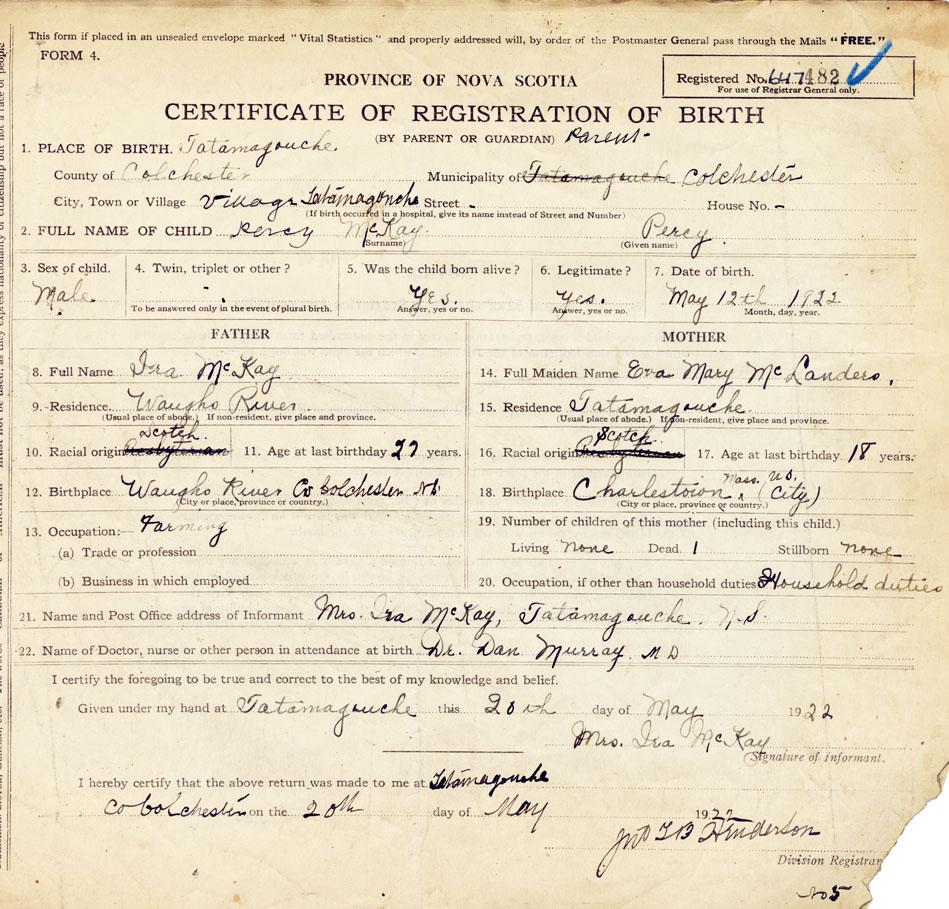 This form if placed in an unsealed envelope marked "Vital Statistics" and properly addressed will, by order of the Postmaster General pass through the Mails "FREE."
FORM 4.
PROVINCE OF NOVA SCOTIA
Registered No. 482
For use of Registrar General only.
CERTIFICATE OF REGISTRATION OF BIRTH
(BY PARENT OR GUARDIAN) Parent
1. PLACE OF BIRTH. Tatamagouche.
County of Colchester Municipality of Tatamagouche Colchester
City, Town or Village Village Tatamagouche Street - House No. -
(If birth occurred in a hospital, give its name instead of Street and Number)
2. FULL NAME OF CHILD Percy McKay. Percy.
(Surname) (Given name)
3. Sex of child. 4. Twin, triplet or other? 5. Was the child born alive? 6. Legitimate? 7. Date of birth.
Male. Yes. Yes. May 12th 1922
To be answered only in the event of plural birth. Answer, yes or no. Answer, yes or no. Month, day, year.
FATHER MOTHER
8. Full Name Ira McKay 14. Full Maiden Name Eva Mary McLanders.
9. Residence. Waughs River. 15. Residence Tatamagouche.
(Usual place of abode.) If non-resident, give place and province. (Usual place of abode.) If non-resident, give place and province.
Scotch. Scotch.
10. Racial origin Presbyterian 11. Age at last birthday 27 years. 16. Racial origin Presbyterian 17. Age at last birthday 18 years.
12. Birthplace Waughs River Co Colchester NS 18. Birthplace Charlestown Mass. U.S. (City)
(City or place, province or country.) (City or place, province or country.)
13. Occupation:— Farming 19. Number of children of this mother (including this child.)
(a) Trade or profession Living None Dead 1 Stillborn none
(b) Business in which employed 20. Occupation, if other than household duties Household duties
21. Name and Post Office address of Informant Mrs. Ira McKay, Tatamagouche. N.S.
22. Name of Doctor, nurse or other person in attendance at birth Dr. Dan Murray MD
I certify the foregoing to be true and correct to the best of my knowledge and belief.
Given under my hand at Tatamagouche this 20th day of May 1922
Mrs. Ira McKay
Signature of Informant.
I hereby certify that the above return was made to me at Tatamagouche
Co Colchester on the 20th day of May 1922
Henderson
Division Registrar
No 5